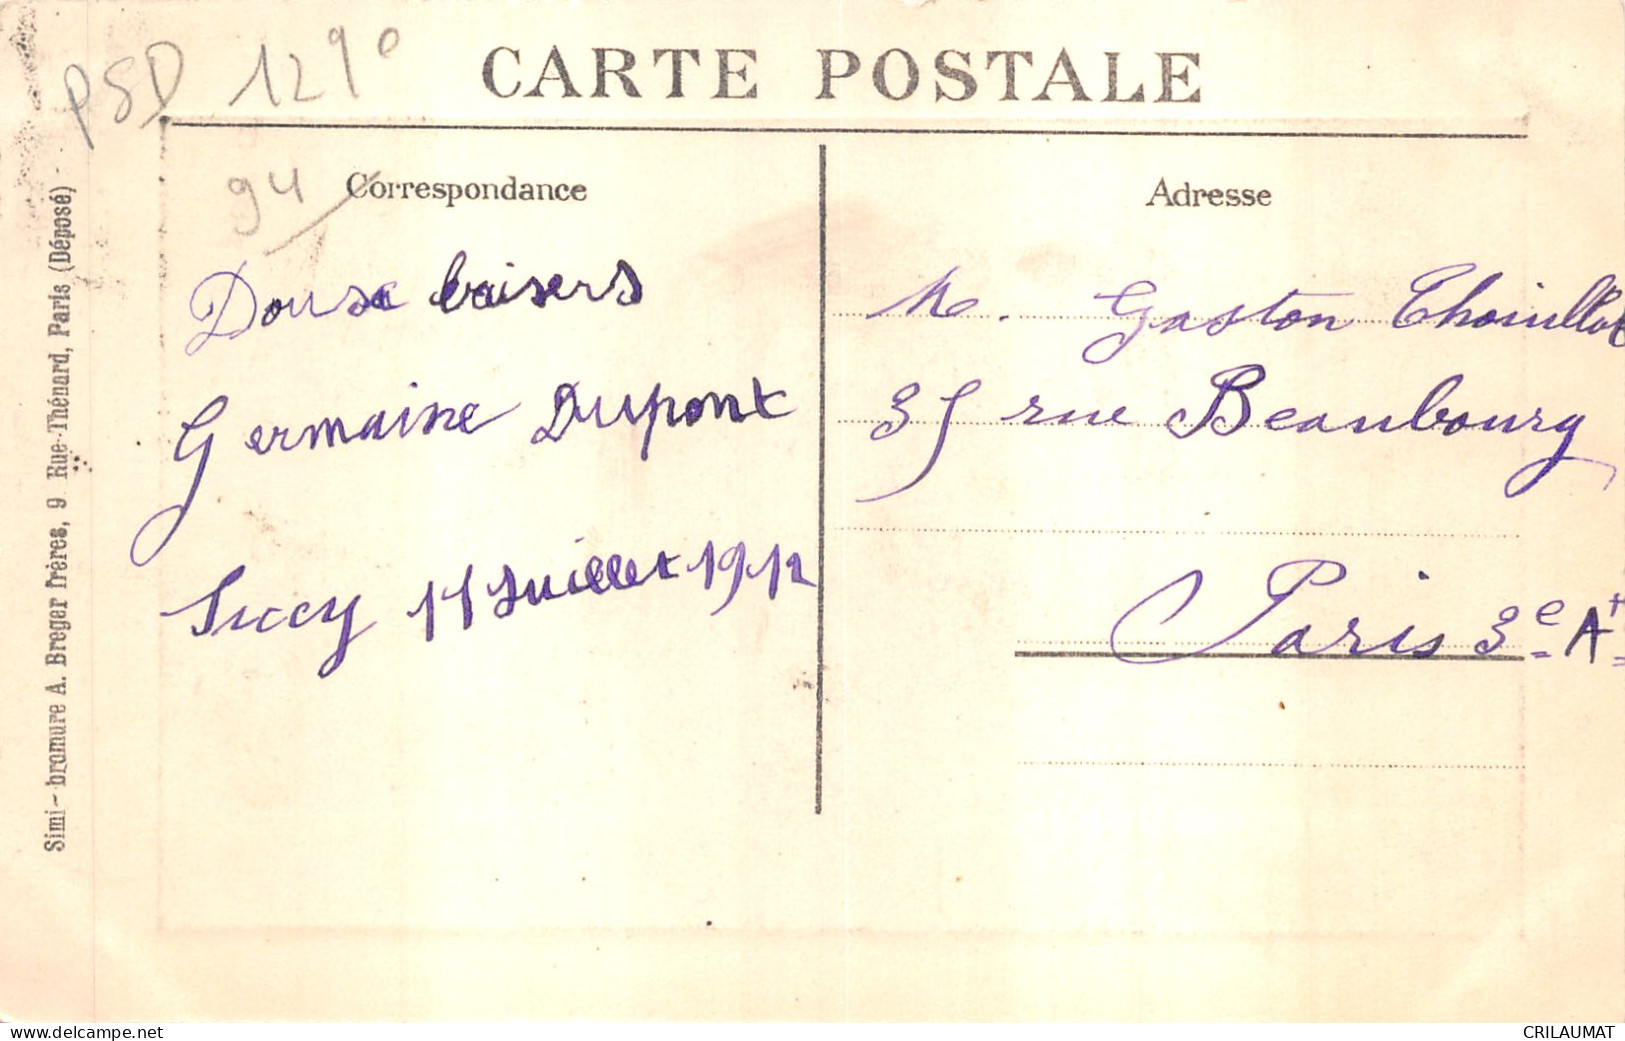 PSD 1290
CARTE POSTALE
94
Correspondance
Doux baisers
Germaine Dupont
Sucy 11 Juillet 1912
Adresse
M. Gaston Thoinillot
35 rue Beaubourg
Paris 3e At
Simi-bromure A. Breger frères, 9 Rue Thénard, Paris (Déposé)
www.delcampe.net
CRILAUMAT